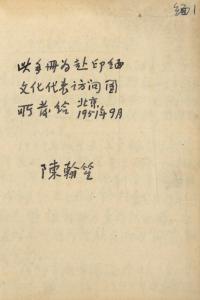 缅1
此手册为赴印缅
文化代表访问团
所发给 北京
1951年9月
陳翰笙